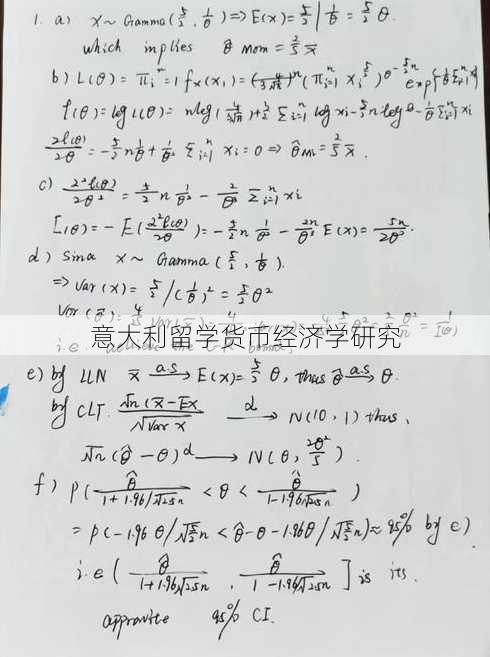 1. a) X ~ Gamma(5/2, 1/θ) => E(x) = 5/2 / 1/θ = 5/2 θ.
which implies θ̂ mom = 2/5 x̄
b) L(θ) = π_{i=1}^n f_X(x_i) =
l(θ) = log L(θ) = n log(4/3√π) + 3/2 Σ_{i=1}^n log xi - 5/2 n log θ - 1/θ Σ_{i=1}^n xi
∂l(θ)/∂θ = -5/2 n 1/θ + 1/θ² Σ_{i=1}^n xi = 0 => θ̂ = 2/5 x̄.
c) ∂²l(θ)/∂θ² = 5/2 n 1/θ² - 2/θ³ Σ_{i=1}^n xi
I(θ) = -E(∂²l(θ)/∂θ) = -5/2 n 1/θ² - 2n/θ³ E(x) = 5n/2θ²
d) Sina X ~ Gamma(5/2, 1/θ).
=> Var(x) = 5/2 /(1/θ)² = 5/2 θ²
Var(θ̂) = 4/25 Var(x̄) = = 1/I(θ)
意大利留学货币经济学研究
i.e.
e) by LLN x̄ a.s→ E(x) = 5/2 θ, thus θ̂ a.s→ θ.
by CLT. √n(x̄-Ex)/√Var x d→ N(0, 1) thus,
√n(θ̂-θ) d→ N(0, 2θ²/5).
f) P(θ̂/1+1.96/√2.5n < θ < θ̂/1-1.96/√2.5n)
= P(-1.96 θ/√5/2 n < θ̂-θ - 1.96θ/√5/2 n) ≈ 95% by e)
i.e [θ̂/1+1.96/√2.5n, θ̂/1-1.96/√2.5n] is its.
95% CI.